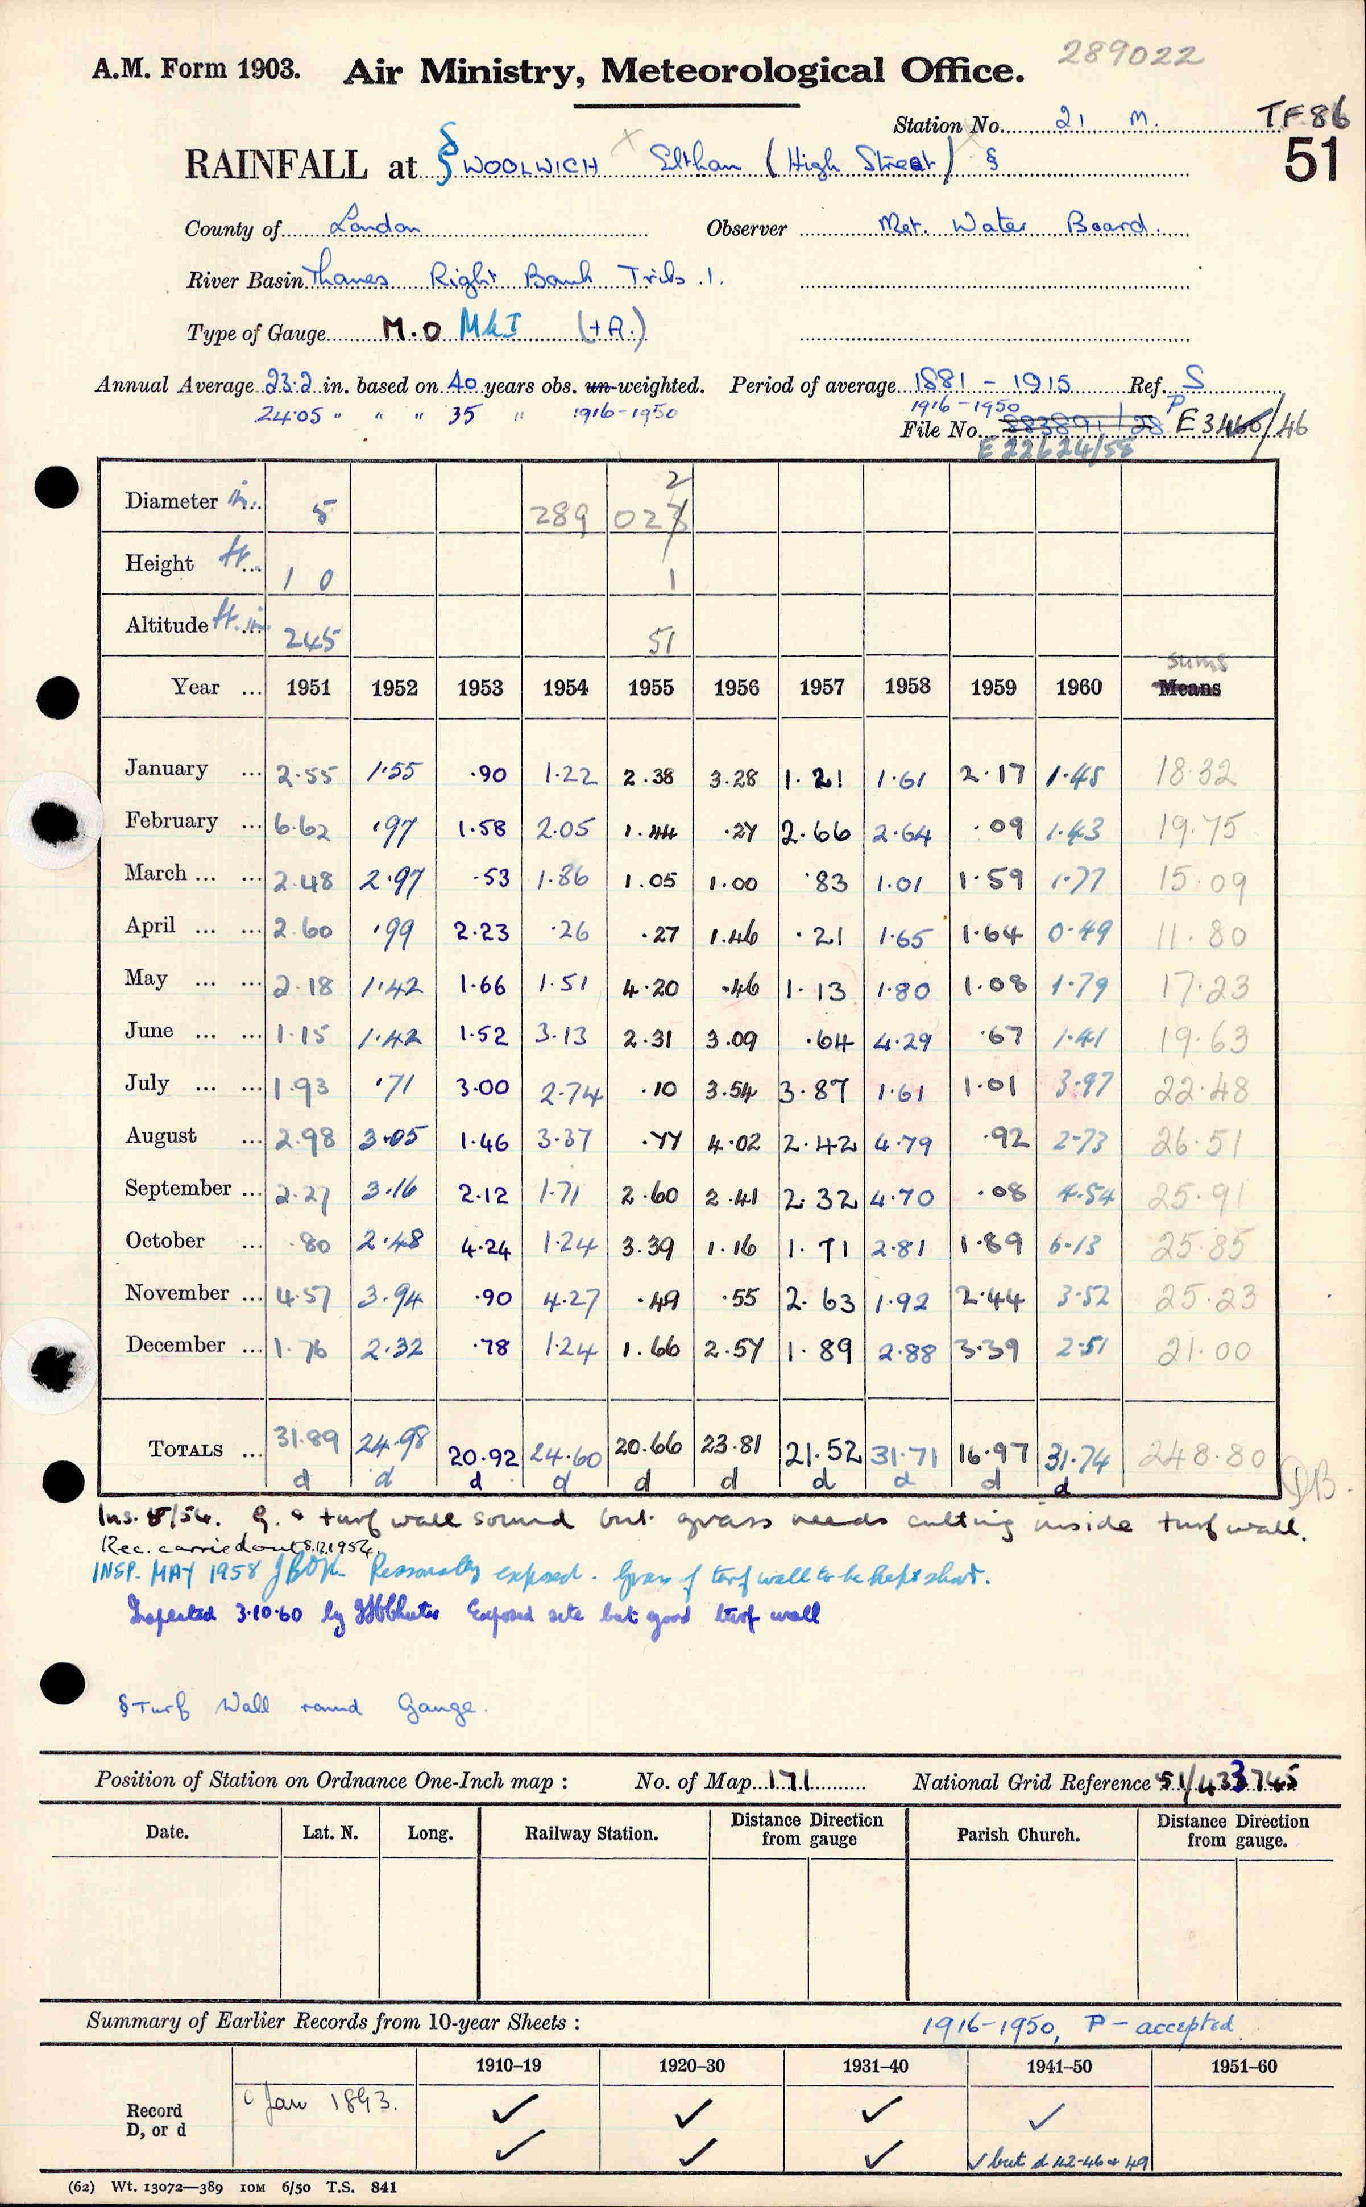 289022
A.M. Form 1903. Air Ministry, Meteorological Office.
Station No. 21 M. TF86
RAINFALL at § WOOLWICH Eltham (High Street) § 51
County of London Observer Met. Water Board
River Basin Thames Right Bank Tribs 1.
Type of Gauge M.O MkI (+A.)
Annual Average 23.2 in. based on 40 years obs. un-weighted. Period of average 1881 - 1915 Ref. S
24.05 " " " 35 " 1916-1950 1916-1950 P
File No. 883891/28 E3460/46
E 22624/58
Diameter in. 5 289 02 2
Height ft. 1 0 1
Altitude ft. in 245 51
sums
Year ... 1951 1952 1953 1954 1955 1956 1957 1958 1959 1960 Means
January ... 2.55 1.55 .90 1.22 2.38 3.28 1.21 1.61 2.17 1.45 18.32
February ... 6.62 .97 1.58 2.05 1.44 .27 2.66 2.64 .09 1.43 19.75
March ... ... 2.48 2.97 .53 1.86 1.05 1.00 .83 1.01 1.59 1.77 15.09
April ... ... 2.60 .99 2.23 .26 .27 1.46 .21 1.65 1.64 0.49 11.80
May ... ... 2.18 1.42 1.66 1.51 4.20 .46 1.13 1.80 1.08 1.79 17.23
June ... ... 1.15 1.42 1.52 3.13 2.31 3.09 .64 4.29 .67 1.41 19.63
July ... ... 1.93 .71 3.00 2.74 .10 3.54 3.87 1.61 1.01 3.97 22.48
August ... 2.98 3.05 1.46 3.37 .77 4.02 2.42 4.79 .92 2.73 26.51
September ... 2.27 3.16 2.12 1.71 2.60 2.41 2.32 4.70 .08 4.54 25.91
October ... .80 2.48 4.24 1.24 3.39 1.16 1.71 2.81 1.89 6.13 25.85
November ... 4.57 3.94 .90 4.27 .49 .55 2.63 1.92 2.44 3.52 25.23
December ... 1.76 2.32 .78 1.24 1.66 2.57 1.89 2.88 3.39 2.51 21.00
TOTALS ... 31.89 24.98 20.92 24.60 20.66 23.81 21.52 31.71 16.97 31.74 248.80
d d d d d d d d d d DB.
Ins. 8/54. G. & turf wall sound but grass needs cutting inside turf wall.
Rec. carried out 8.12.1954.
INSP. MAY 1958 Reasonably exposed. Grass of turf wall to be kept short.
Inspected 3.10.60 by Exposed site but good turf wall
§ Turf Wall round Gauge.
Position of Station on Ordnance One-Inch map : No. of Map 171 National Grid Reference 51/433745
Date. Lat. N. Long. Railway Station. Distance from gauge Direction Parish Church. Distance from gauge. Direction
Summary of Earlier Records from 10-year Sheets : 1916-1950, P - accepted
1910–19 1920–30 1931–40 1941–50 1951–60
Record D, or d Jan 1893. ✓ ✓ ✓ ✓
✓ ✓ ✓ ✓ but d 42-46 & 49
(62) Wt. 13072—389 10M 6/50 T.S. 841